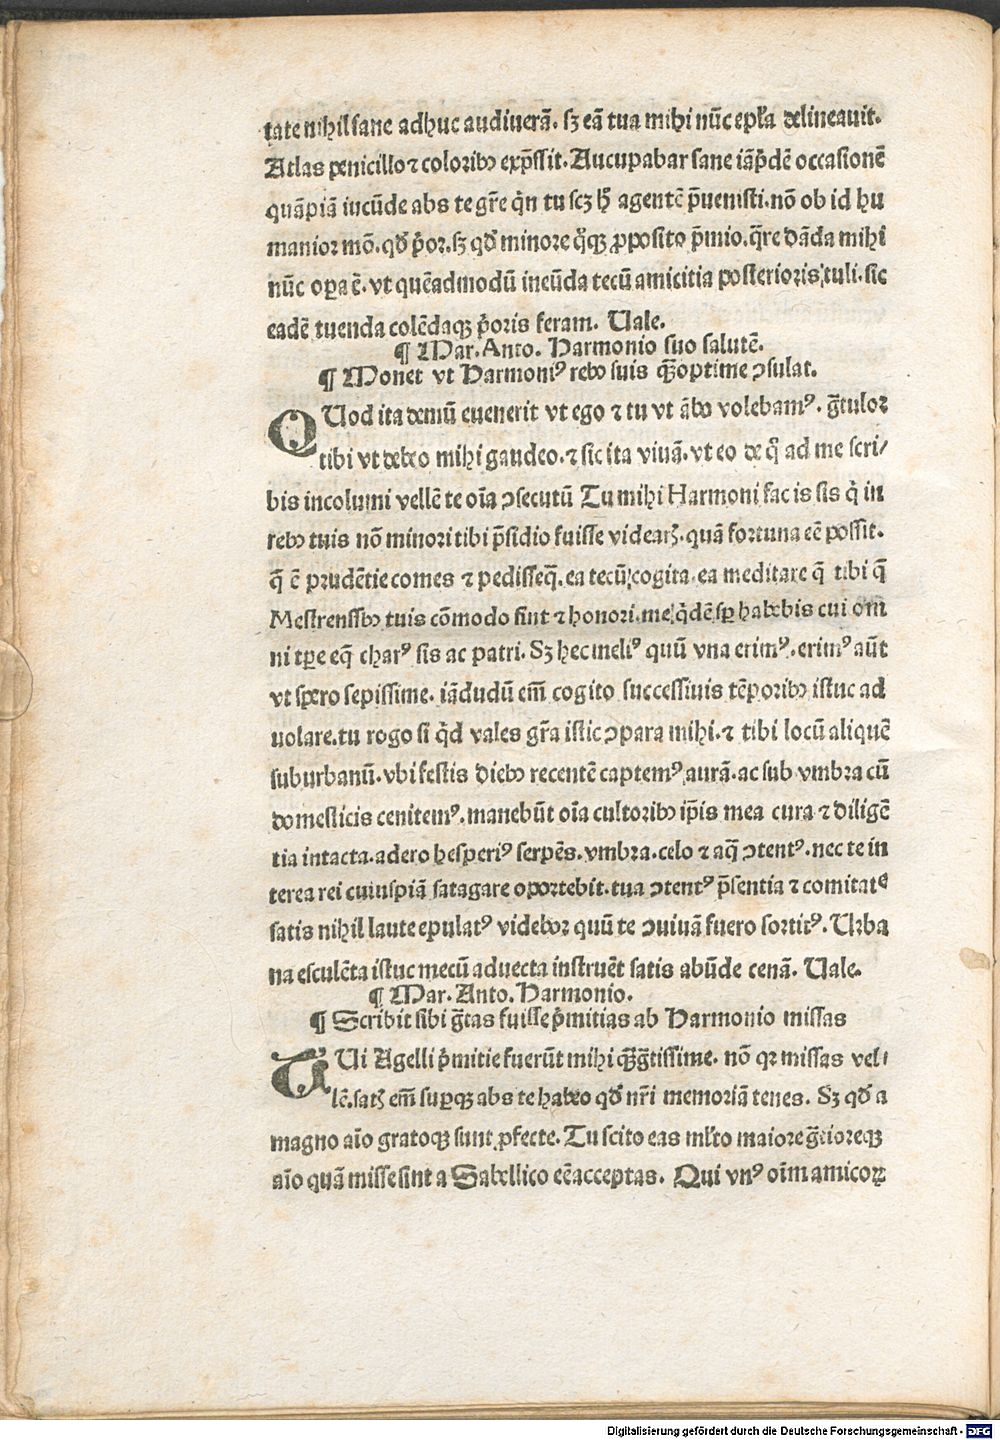 tate nihil sane adhuc audiuerã. sꝫ eã tua mihi nũc epl̃a delineauit.
Atlas penicillo ⁊ coloribꝰ exp̃ssit. Aucupabar sane iãp̃dẽ occasionẽ
quãpiã iucũde abs te gr̃e q̃n tu scꝫ h̃ agentẽ p̃uenisti. nõ ob id hu
manior mõ. qd̃ p̃or. sꝫ qd̃ minore q̃qꝫ ꝓposito p̃mio. q̃re dãda mihi
nũc opa ẽ. vt quẽadmodũ ineũda tecũ amicitia posterioris tuli. sic
eadẽ tuenda colẽdaqꝫ p̃oris feram. Uale.
¶ Mar. Anto. Harmonio suo salutẽ.
¶ Monet vt Harmoniꝰ rebꝰ suis qꝫ̃optime ꝯsulat.
QUod ita demũ euenerit vt ego ⁊ tu vt ãbo volebamꝰ. g̃tuloꝛ
tibi vt debeo mihi gaudeo. ⁊ sic ita viuã. vt eo de q̃ ad me scri/
bis incolumi vellẽ te oĩa ꝯsecutũ Tu mihi Harmoni fac is sis q̃ in
rebꝰ tuis nõ minori tibi p̃sidio fuisse videarꝭ. quã fortuna eẽ possit.
q̃ ẽ prudẽtie comes ⁊ pedisseq̃. ea tecũ cogita. ea meditare q̃ tibi q̃
Mestrensibꝰ tuis cõmodo sint ⁊ honori. me q̃dẽ sꝑ habebis cui om̃
ni tꝑe eq̃ charꝰ sis ac patri. Sꝫ hec meliꝰ quũ vna erimꝰ. erimꝰ aũt
vt spero sepissime. iãdudũ em̃ cogito successiuis tẽporibꝰ istuc ad
uolare. tu rogo si q̃d vales gr̃a istic ꝯpara mihi. ⁊ tibi locũ aliquẽ
suburbanũ. vbi festis diebꝰ recentẽ captemꝰ aurã. ac sub vmbra cũ
domesticis cenitemꝰ. manebũt oĩa cultoribꝰ ip̃is mea cura ⁊ diligẽ
tia intacta. adero hesperiꝰ serpẽs. vmbra. celo ⁊ aq̃ ꝯtentꝰ. nec te in
terea rei cuiuspiã satagare oportebit. tua ꝯtentꝰ p̃sentia ⁊ comitate
satis nihil laute epulatꝰ videbor quũ te ꝯuiuã fuero sortitꝰ. Urba
na esculẽta istuc mecũ aduecta instruẽt satis abũde cenã. Uale.
¶ Mar. Anto. Harmonio.
¶ Scribit sibi g̃tas fuisse p̃mitias ab Harmonio missas
TUi Agelli p̃mitie fuerũt mihi qꝫ̃g̃tissime. nõ qꝛ missas vel/
lẽ. satꝭ em̃ suꝑqꝫ abs te habeo qd̃ nr̃i memoriã tenes. Sꝫ qd̃ a
magno aĩo gratoqꝫ sunt ꝓfecte. Tu scito eas ml̃to maiore g̃tioreqꝫ
aĩo quã misse sint a Sabellico eẽ acceptas. Qui vnꝰ oĩm amicoꝝ
Digitalisierung gefördert durch die Deutsche Forschungsgemeinschaft - DFG